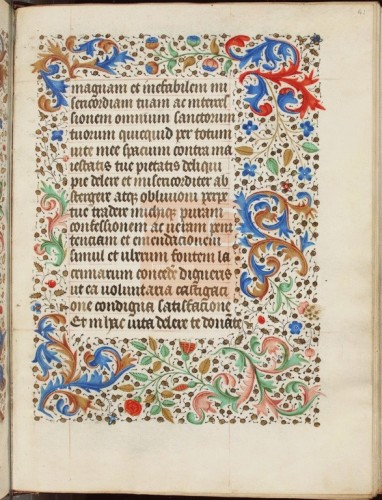 magnam et inefabilem mi
sericordiam tuam ac intercel
sionem omnium sanctorum
tuorum quicquid per totum
vite mee spacium contra ma
iestatis tue pietatis deliqui
pie delere et misericorditer ab
stergere atq oblivioni perpe
tue tradere michiq puram
confessionem ac veram peni
tenciam et emendacionem
simul et uberum fontem la
crimarum concede digneris
ut ea voluntaria castigaci
one condigna satisfacione
Et in hac vita delere te donate